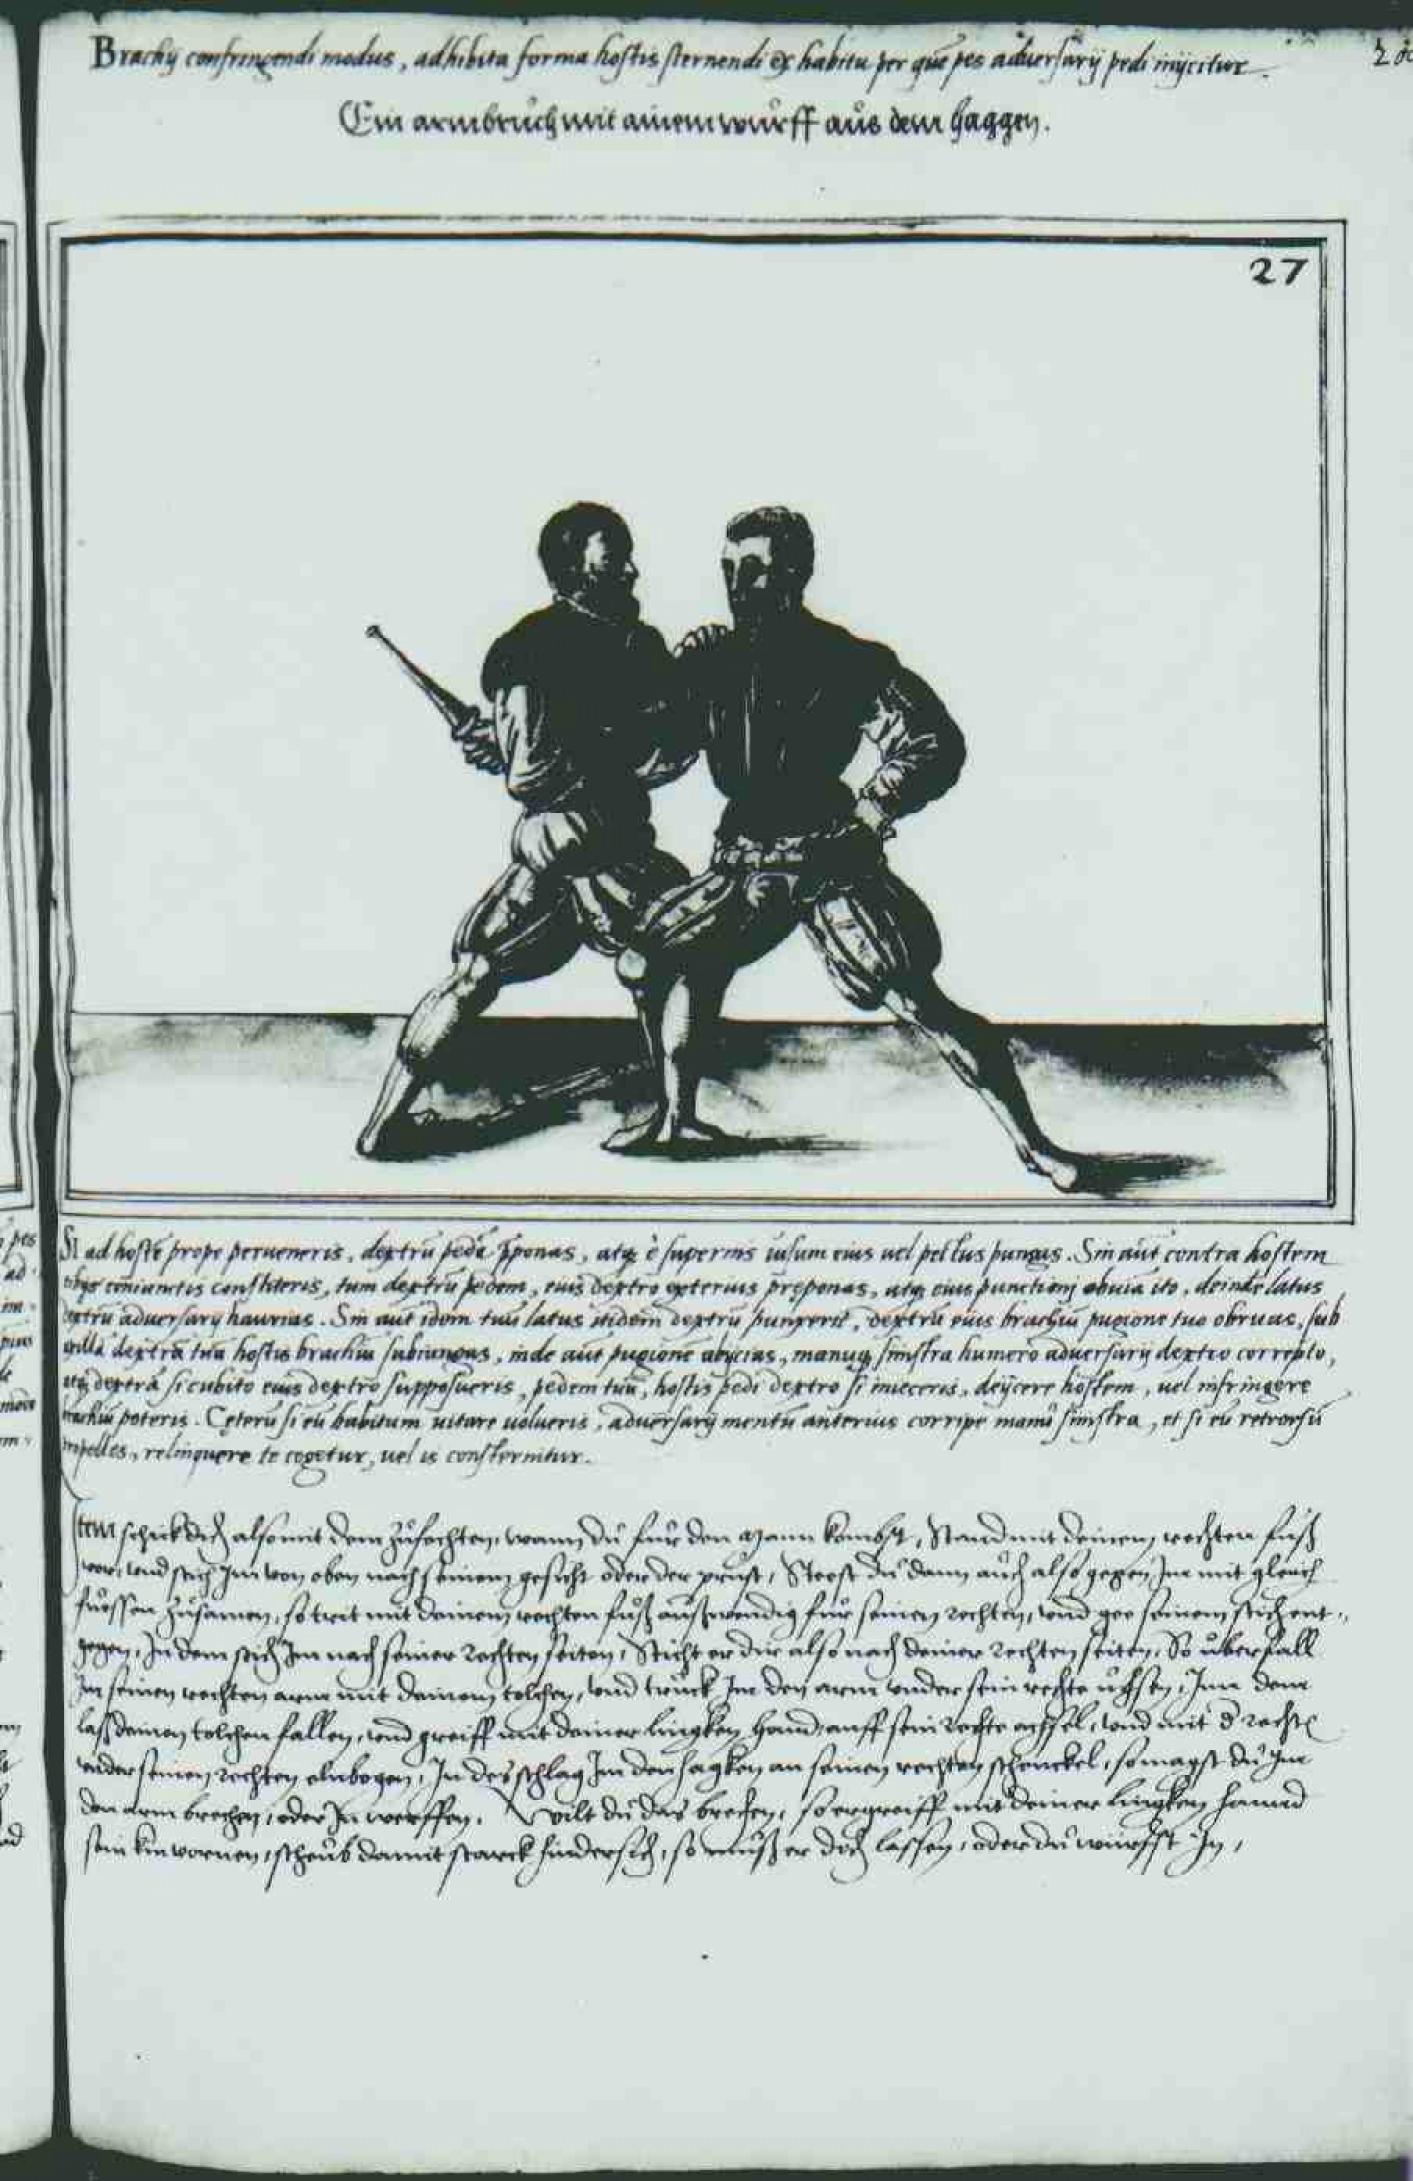 Brachij confringendi modus, adhibita forma hostis sternendi ex habitu per quē pes adversarij pedi inijcitur.
Ein armbruch mit ainem wurff aus dem haggen.
27
SI ad hostē prope perveneris, dextrū pedē p̄ponas, atq; è supernis visum eius vel pectus pungas. Sin aūt contra hostem
coniunctis constiteris, tum dextrū pedem, eius dextro exterius preponas, atq; eius punctioni obvia ito, deinde latus
dextrū adversarij haurias. Sin aūt idem tuū latus itidem dextrū punxerit, dextrū eius brachiū pugione tuo obruas, sub
axilla dextra tua hostis brachiū subiungas, inde aūt pugionē abijcias, manuq; sinistra humero adversarij dextro correpto,
atq; dextra si cubito eius dextro supposueris, pedem tuū, hostis pedi dextro si inieceris, deijcere hostem, vel infringere
brachiū poteris. Ceterū si eū habitum vitare volueris, adversarij mentū anterius corripe manu sinistra, et si eū retrorsū
impelles, relinquere te cogetur, vel is consternitur.
Item schick dich also mit dem zufechten, wann du fur den mann kombst, Stand mit deinem rechten fuß
vor, vnd stich Im von oben nach seinem gesicht oder der prust, Steest du dann auch also gegen Im mit gleich
fuessen zusamen, so trit mit deinem rechten fuß außwendig fur seinen rechten, vnd gee seinem stich ent-
gegen, In dem stich Im nach seiner rechten seiten, Sticht er dir also nach deiner rechten seiten, So uberfall
Im seinen rechten arm mit deinem tolchen, vnd truck Im den arm vnder sein rechte uchsen, Inn dem
laß deinen tolchen fallen, vnd greiff mit deiner lingken hand auff sein rechte achsel, vnd mit d rechtē
vnder seinen rechten elnbogen, In des schlag Im den hagken an seinen rechten schenckel, so magst du Im
den arm brechen, oder In werffen. Wilt du das brechen, so ergreiff mit deiner lingken hannd
sein kin vornen, scheub damit starck hindersich, so muß er dich lassen, oder du wurffst In,